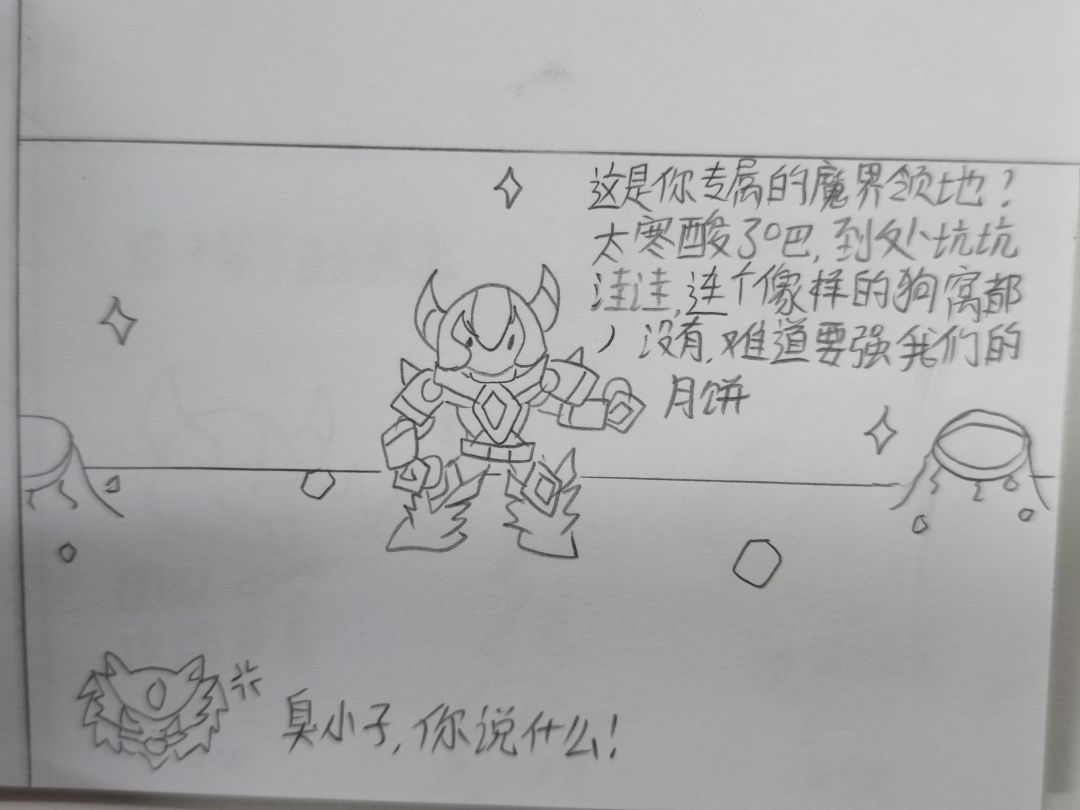 这是你专属的魔界领地?
太寒酸了吧,到处坑坑
洼洼,连个像样的狗窝都
没有,难道要强我们的
月饼
臭小子,你说什么!